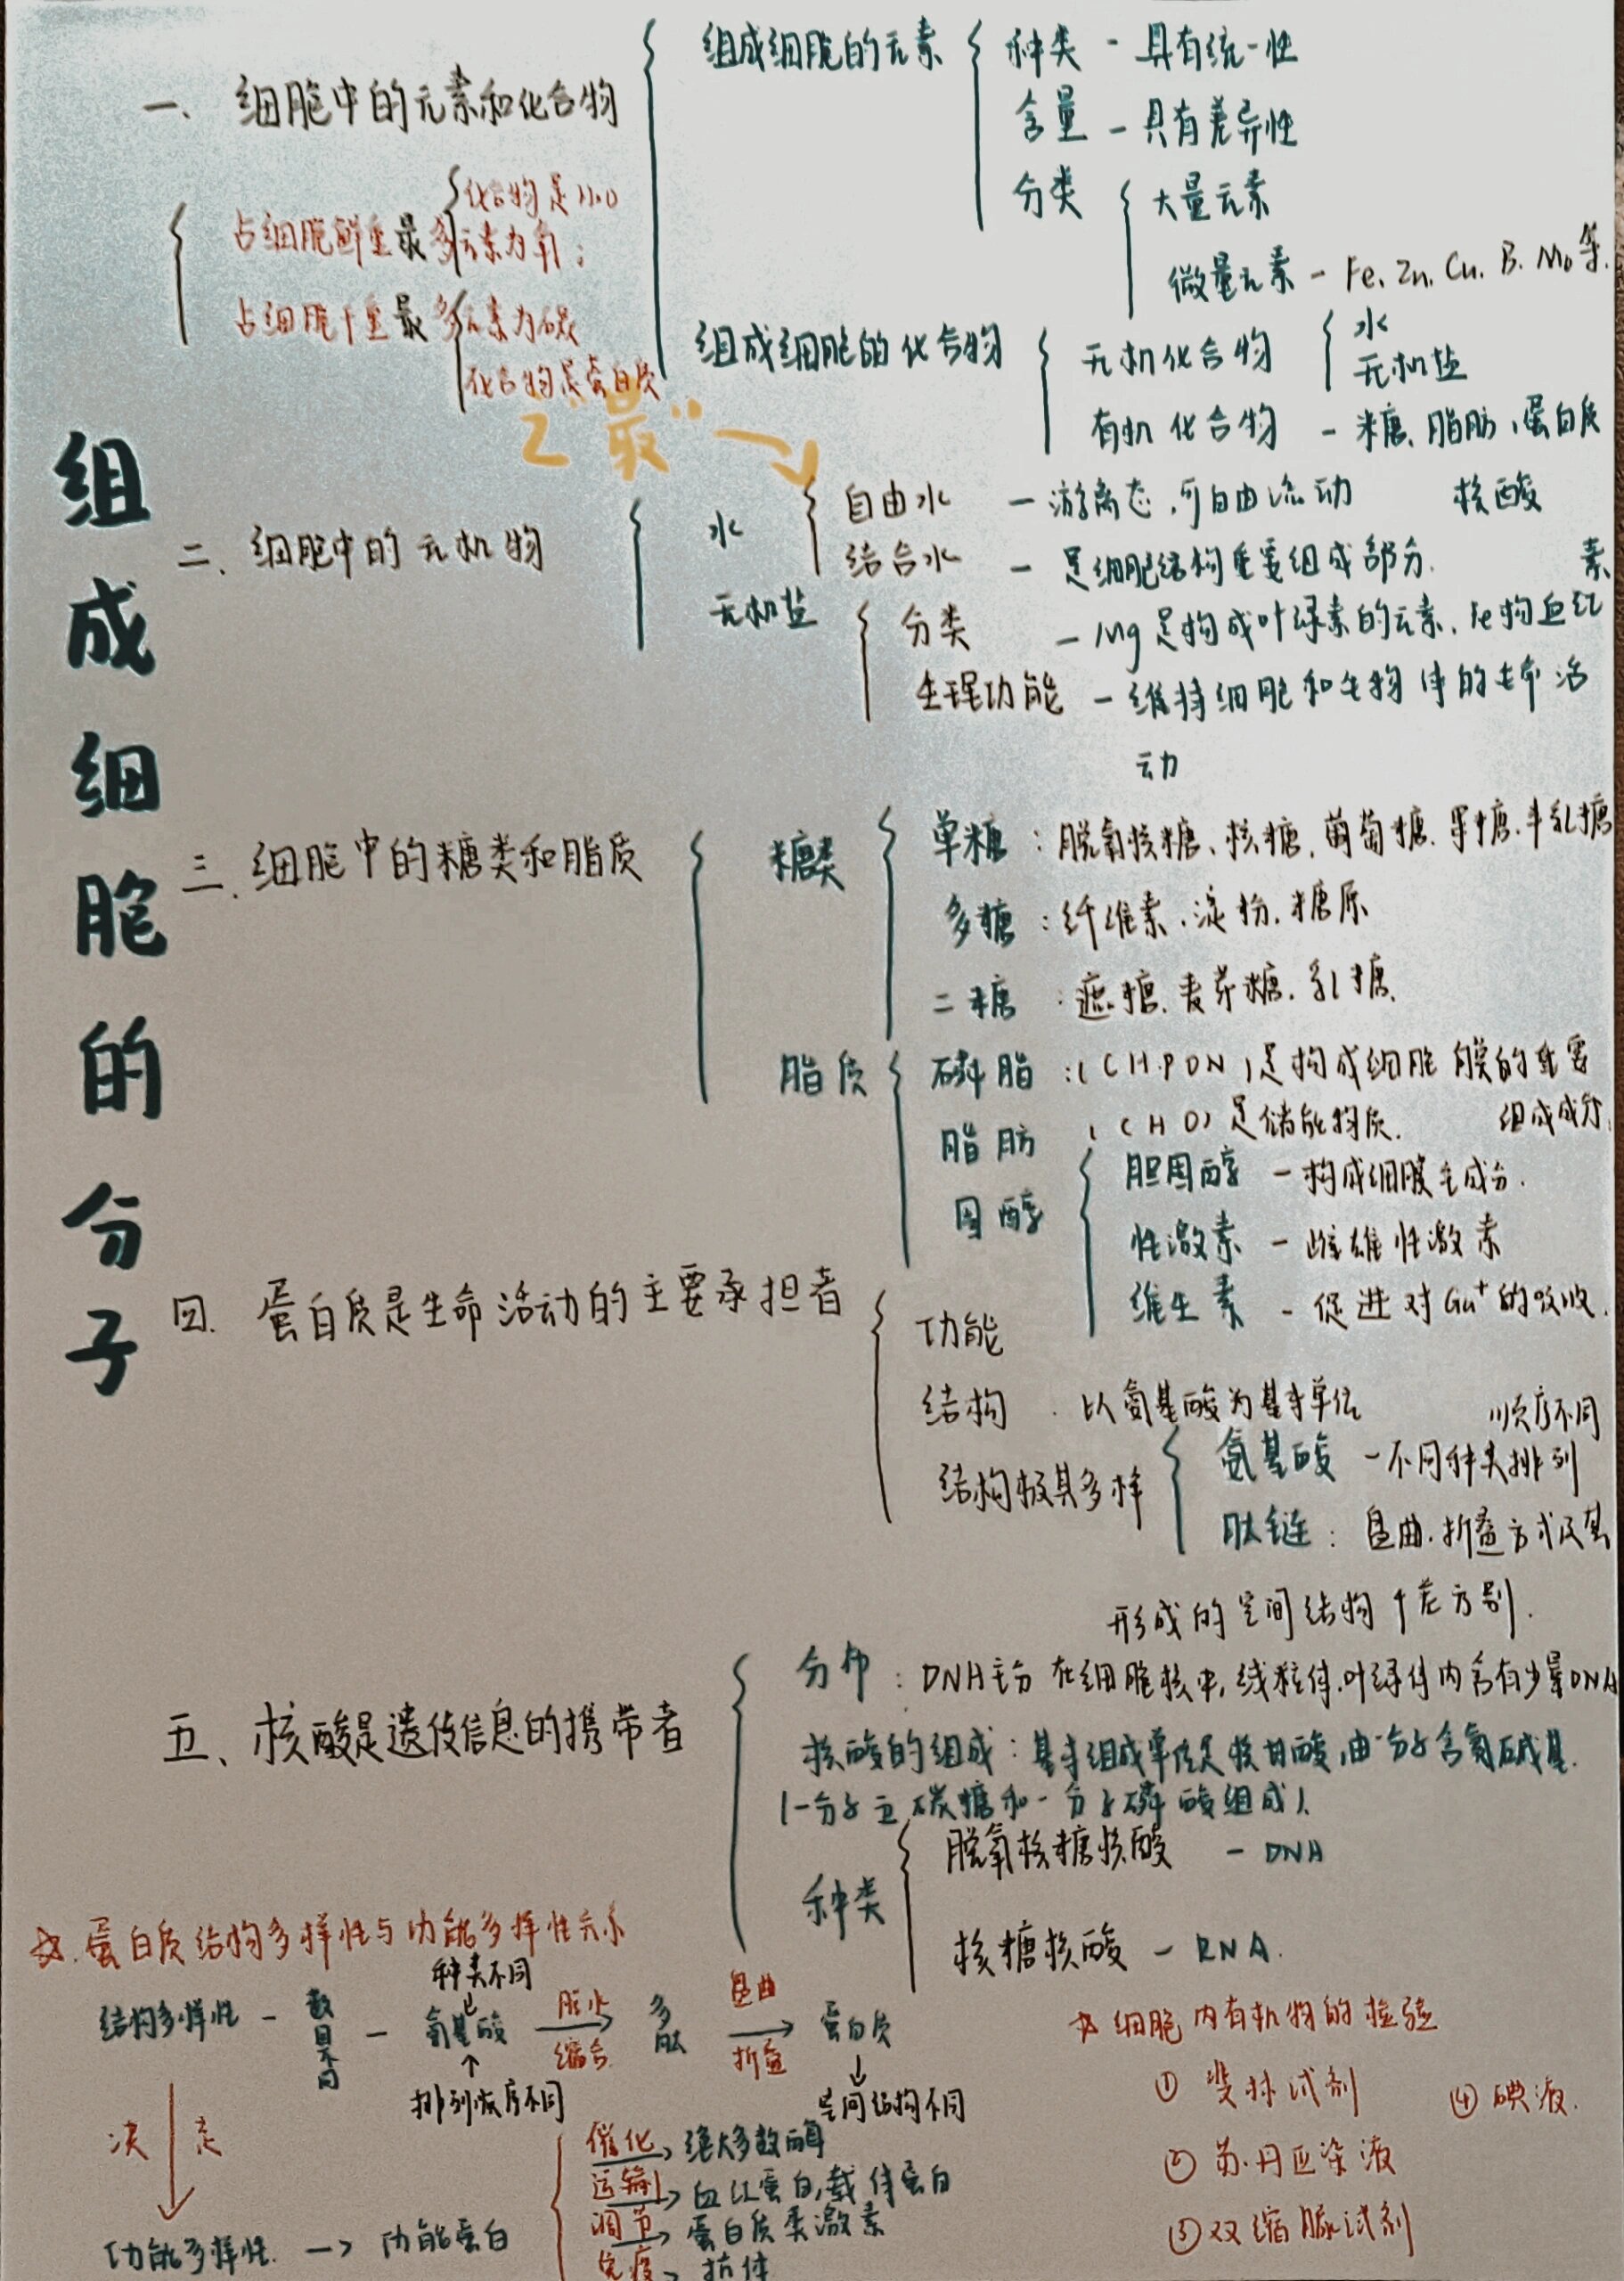 组成细胞的分子
一、细胞中的元素和化合物
组成细胞的元素
种类 - 具有统一性
含量 - 具有差异性
分类
大量元素
微量元素 - Fe、Zn、Cu、B、Mo等.
组成细胞的化合物
无机化合物
水
无机盐
有机化合物 - 糖、脂肪、蛋白质
核酸
化合物是H2O
占细胞鲜重最多元素为氧;
占细胞干重最多元素为碳
化合物是蛋白质
2"最"
二、细胞中的无机物
水
自由水 - 游离态,可自由流动
结合水 - 是细胞结构重要组成部分.
无机盐
分类 - Mg是构成叶绿素的元素,Fe构血红
素
生理功能 - 维持细胞和生物体的生命活
动
三、细胞中的糖类和脂质
糖类
单糖:脱氧核糖、核糖、葡萄糖、果糖、半乳糖
多糖:纤维素、淀粉、糖原
二糖:蔗糖、麦芽糖、乳糖、
脂质
磷脂:(CHPON)是构成细胞膜的重要
组成成分.
脂肪 (CHO)是储能物质.
固醇
胆固醇 - 构成细膜主成分.
性激素 - 雌雄性激素
维生素 - 促进对Ga+的吸收.
四、蛋白质是生命活动的主要承担者
功能
结构 . 以氨基酸为基本单位
结构极具多样
顺序不同
氨基酸 - 不同种类排列
肽链:盘曲.折叠方式及其
形成的空间结构千差万别.
五、核酸是遗传信息的携带者
分布:DNA主分在细胞核中,线粒体.叶绿体内含有少量DNA
核酸的组成:基本组成单位是核苷酸,由一分子含氮碱基.
(一分子五碳糖和一分子磷酸组成).
种类
脱氧核糖核酸 - DNA
核糖核酸 - RNA.
☆.蛋白质结构多样性与功能多样性关系
种类不同
结构多样性 - 数目不同 - 氨基酸 脱水缩合 → 多肽 盘曲折叠 → 蛋白质
排列顺序不同 空间结构不同
决定
功能多样性. → 功能蛋白
催化 → 绝大多数酶
运输 → 血红蛋白,载体蛋白
调节 → 蛋白质类激素
免疫 → 抗体
☆细胞内有机物的检验
① 斐林试剂 ④ 碘液.
② 苏丹Ⅲ染液
③ 双缩脲试剂